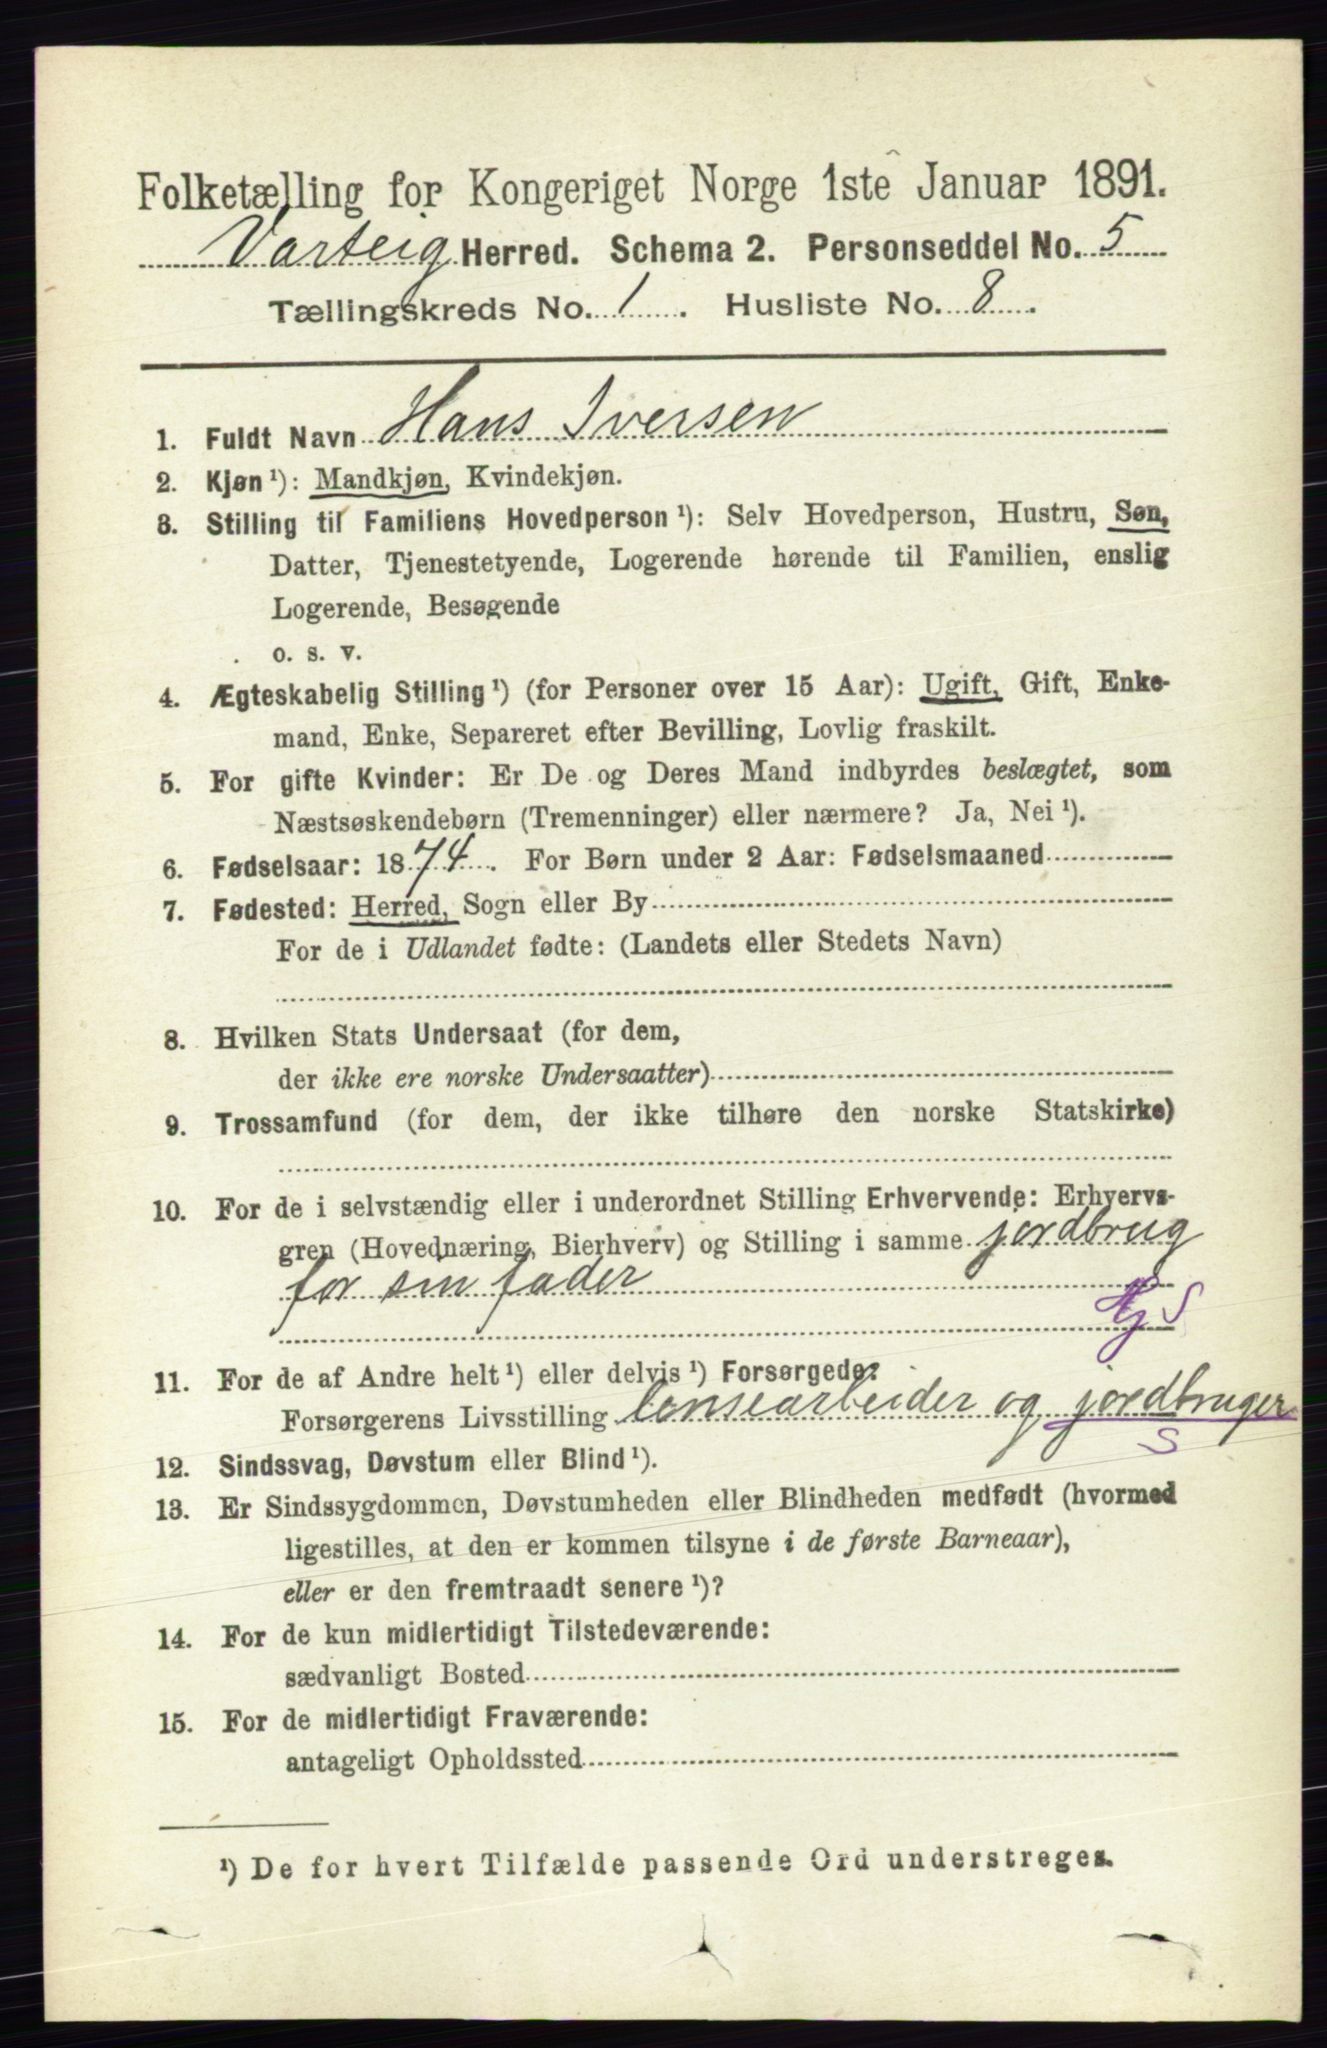 Folketælling for Kongeriget Norge 1ste Januar 1891.
Varteig Herred. Schema 2. Personseddel No. 5
Tællingskreds No. 1. Husliste No. 8.
1. Fuldt Navn Hans Iversen
2. Kjøn¹): Mandkjøn, Kvindekjøn.
3. Stilling til Familiens Hovedperson¹): Selv Hovedperson, Hustru, Søn,
Datter, Tjenestetyende, Logerende hørende til Familien, enslig
Logerende, Besøgende
o. s. v.
4. Ægteskabelig Stilling¹) (for Personer over 15 Aar): Ugift, Gift, Enke-
mand, Enke, Separeret efter Bevilling, Lovlig fraskilt.
5. For gifte Kvinder: Er De og Deres Mand indbyrdes beslægtet, som
Næstsøskendebørn (Tremenninger) eller nærmere? Ja, Nei¹).
6. Fødselsaar: 1874. For Børn under 2 Aar: Fødselsmaaned
7. Fødested: Herred, Sogn eller By
For de i Udlandet fødte: (Landets eller Stedets Navn)
8. Hvilken Stats Undersaat (for dem,
der ikke ere norske Undersaatter)
9. Trossamfund (for dem, der ikke tilhøre den norske Statskirke)
10. For de i selvstændig eller i underordnet Stilling Erhvervende: Erhvervs-
gren (Hovednæring, Bierhverv) og Stilling i samme jordbrug
for sin fader
Hj S
11. For de af Andre helt¹) eller delvis¹) Forsørgede:
Forsørgerens Livsstilling lensearbeider og jordbruger
S
12. Sindssvag, Døvstum eller Blind¹).
13. Er Sindssygdommen, Døvstumheden eller Blindheden medfødt (hvormed
ligestilles, at den er kommen tilsyne i de første Barneaar),
eller er den fremtraadt senere¹)?
14. For de kun midlertidigt Tilstedeværende:
sædvanligt Bosted
15. For de midlertidigt Fraværende:
antageligt Opholdssted
¹) De for hvert Tilfælde passende Ord understreges.